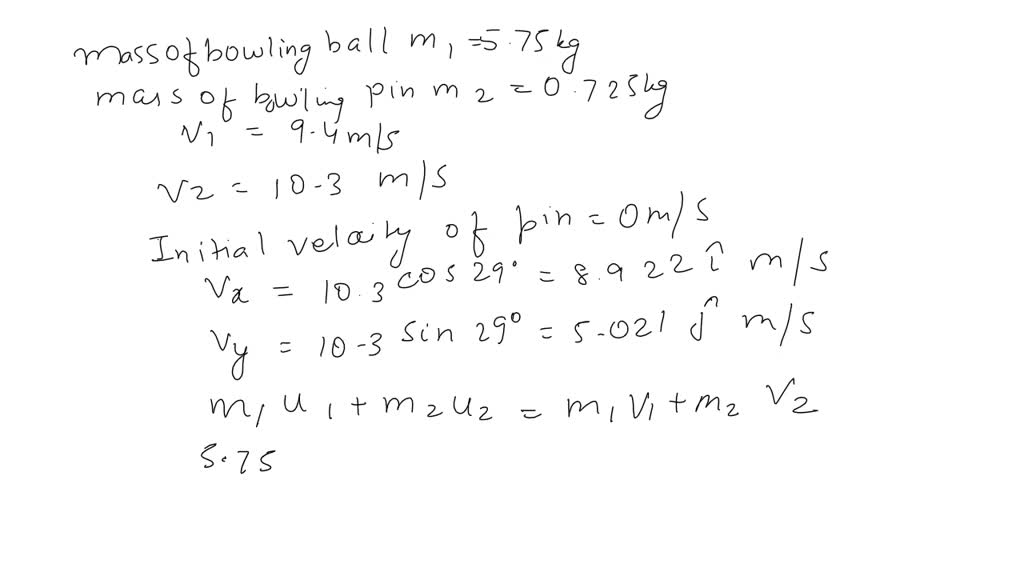 mass of bowling ball m₁ = 5.75 kg
mass of bowling pin m₂ = 0.725 kg
v₁ = 9.4 m/s
v₂ = 10.3 m/s
Initial velocity of pin = 0 m/s
Vx = 10.3 cos 29° = 8.922 î m/s
Vy = 10.3 sin 29° = 5.021 ĵ m/s
m₁ u₁ + m₂ u₂ = m₁ v₁ + m₂ v₂
5.75